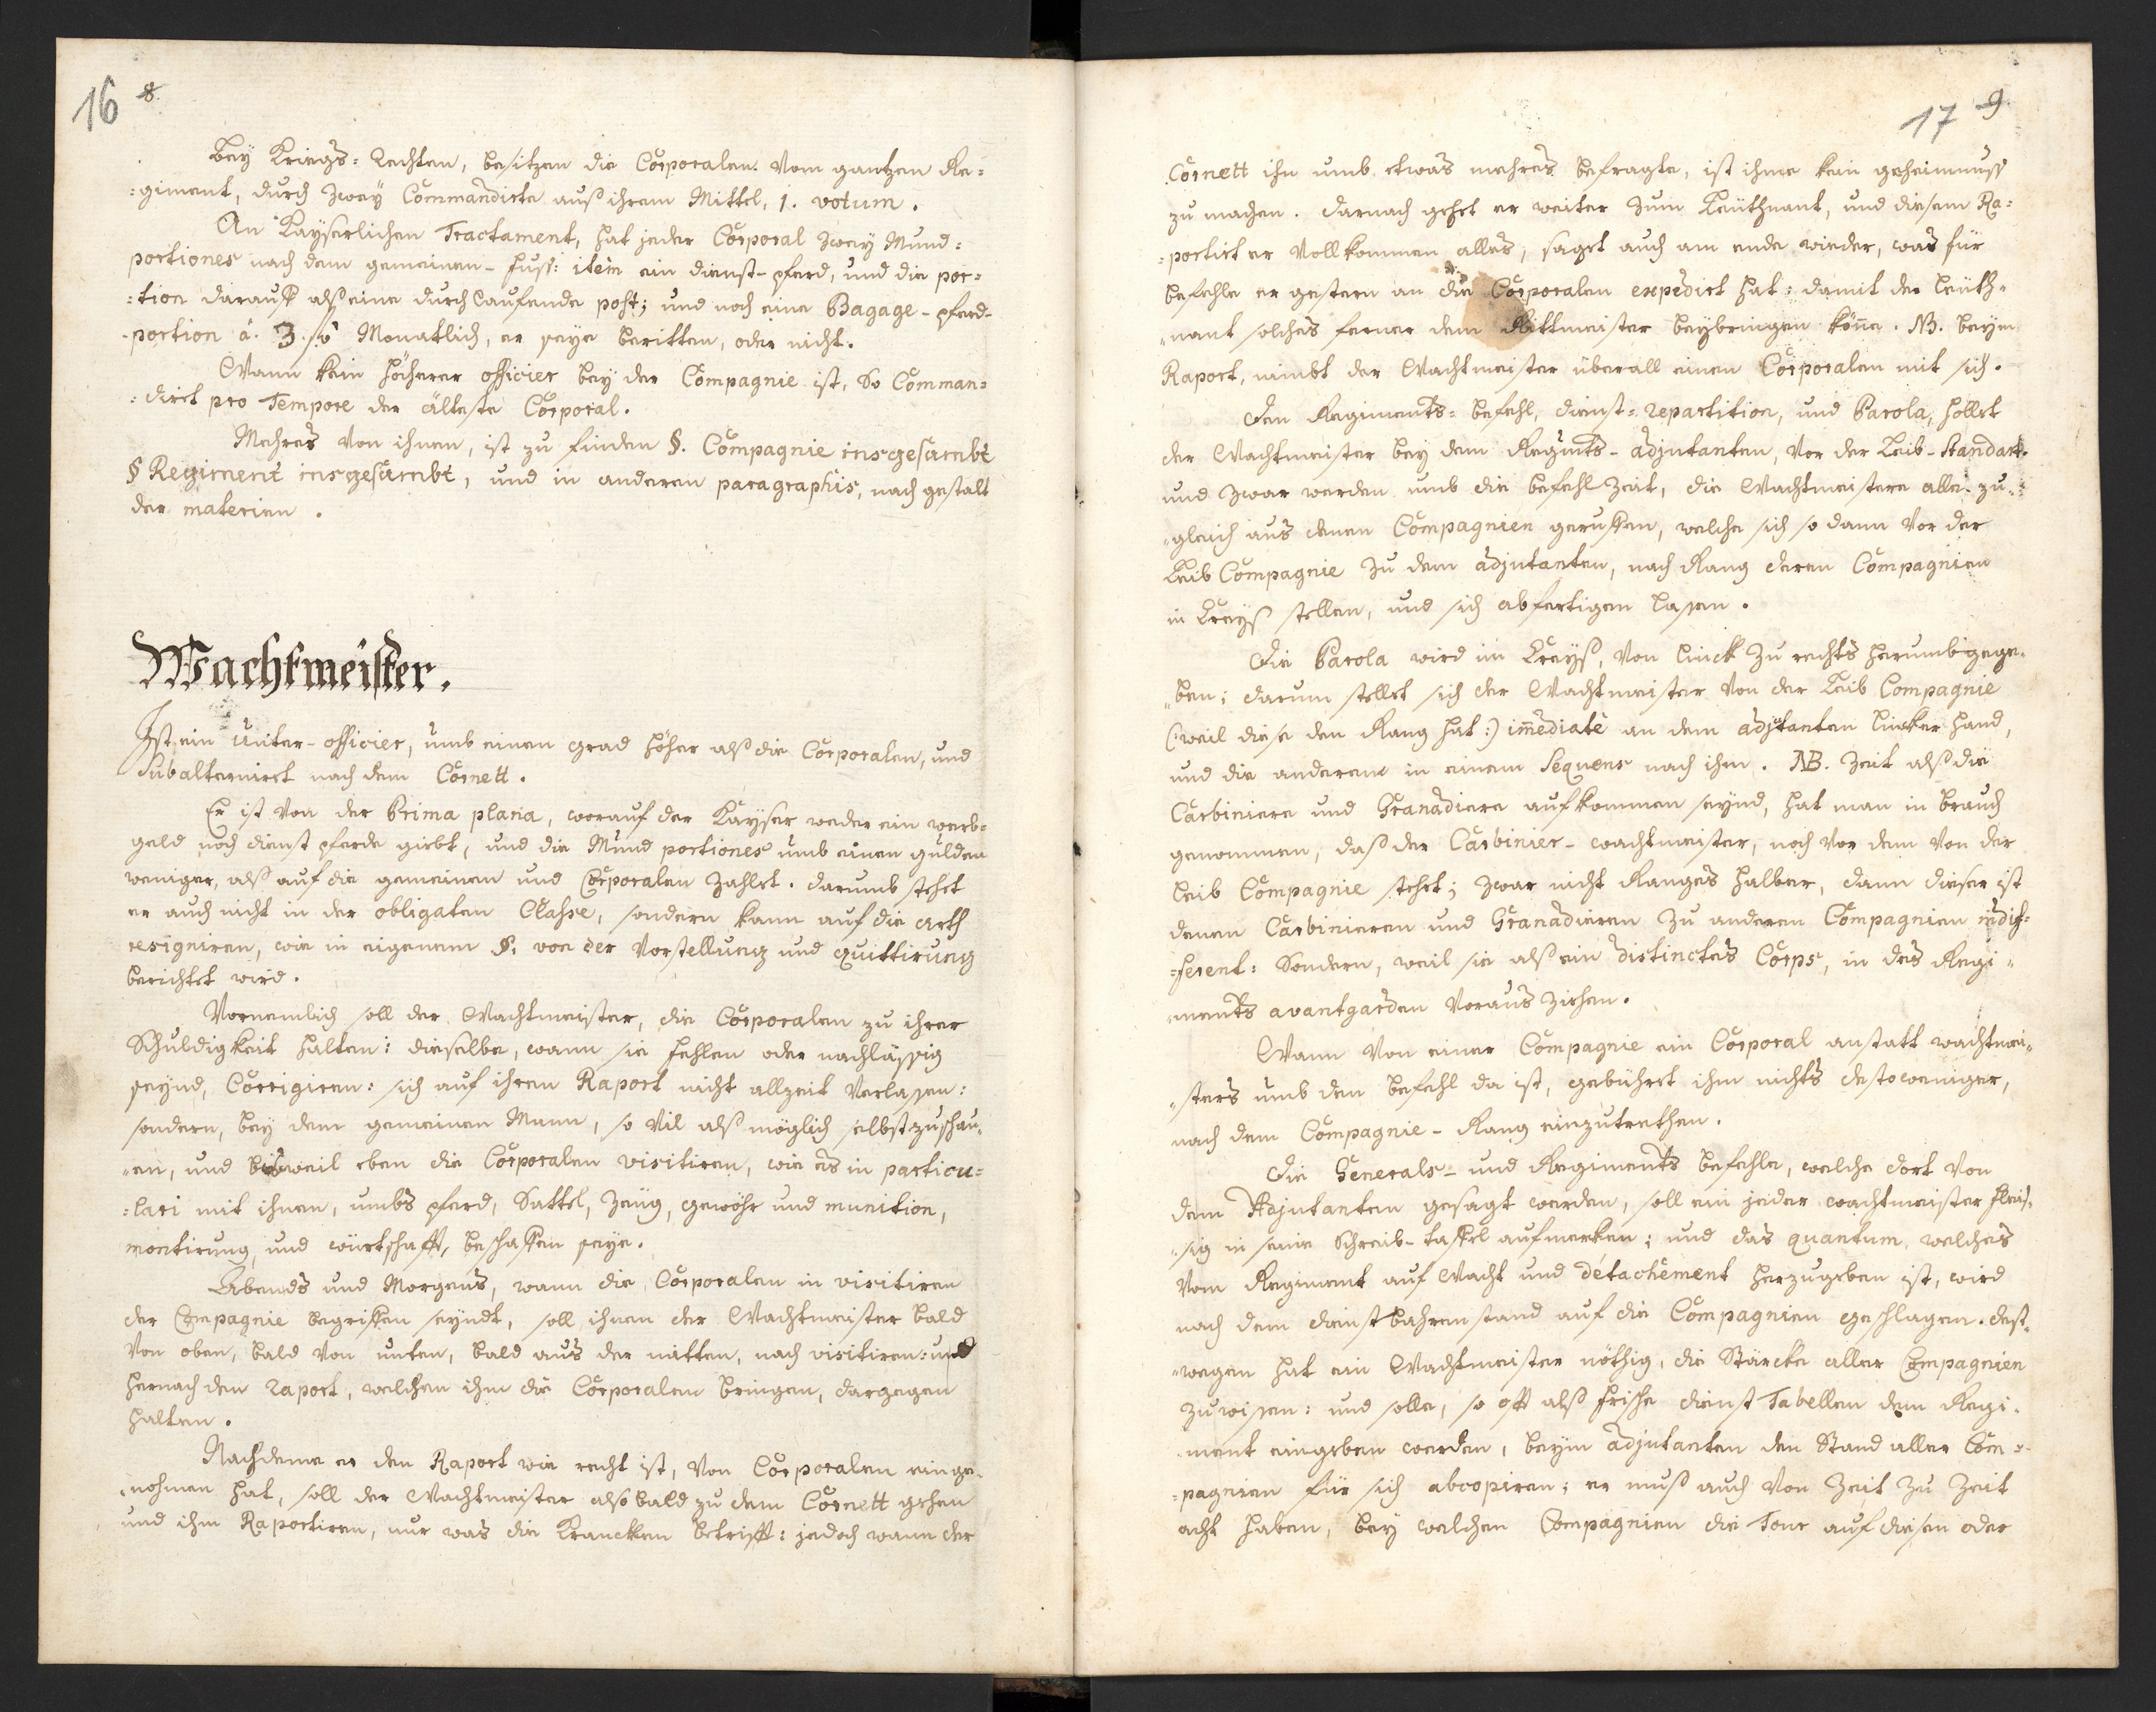 16 8.
Bey Kriegs=Rechten, besitzen die Corporalen vom gantzen Re=
=giment, durch zwey Commandirte auß ihrem Mittel, 1. votum.
An Kayserlichen Tractament, hat jeder Corporal zwey Mund=
portiones nach dem gemeinen-fuß: item ein dienst-pferd, und die por=
=tion darauff alß eine durchlauffende post; und noch eine Bagage-pferd-
portion â. 3. fô Monatlich, er seye beritten, oder nicht.
Wann kein höcherer officier bey der Compagnie ist, So Comman=
=dirt pro Tempore der älteste Corporal.
Mehres von ihnen, ist zu finden §. Compagnie insgesambt
§ Regiment insgesambt, und in anderen paragraphis, nach gestalt
der materien.
Wachtmeister.
Ist ein Unter-officier, umb einen grad höher alß die Corporalen, und
Subalternirt nach dem Cornett.
Er ist von der Prima plana, worauf der Kayser weder ein werb=
geld noch dienst pferde giebt, und die Mund portiones umb einen gulden
weniger, alß auf die gemeinen und Corporalen zahlet. darumb stehet
er auch nicht in der obligaten Classe, sondern kann auf die arth
resigniren, wie in eigenem §. von der Vorstellung und quittirung
berichtet wird.
Vornemlich soll der Wachtmeister, die Corporalen zu ihrer
Schuldigkeit halten: dieselbe, wann sie fehlen oder nachlässig
seynd, Corrigiren: sich auf ihren Raport nicht allzeit verlassen:
sondern, bey dem gemeinen Mann, so vil alß möglich selbst zuschau=
=en, und bisweil eben die Corporalen visitiren, wie es in particu=
=lari mit ihnen, umbs pferd, Sattel, zeug, gewöhr und munition,
montirung, und würtschafft, beschaffen seye.
Abends und Morgens, wann die Corporalen in visitiren
der Compagnie begriffen seyndt, soll ihnen der Wachtmeister bald
von oben, bald von unten, bald aus der mitten, nach visitiren: und
hernach den raport, welchen ihm die Corporalen bringen, dargegen
halten.
Nachdeme er den Raport wie recht ist, von Corporalen einge=
=nohmen hat, soll der Wachtmeister alsobald zu dem Cornett gehen
und ihm Raportiren, nur was die Krancken betrifft: jedoch wann der
17 9.
Cornett ihn umb etwas mehres befragte, ist ihme kein geheimnuß
zu machen. darnach gehet er weiter zum Leuthnant, und diesem Ra=
=portirt er vollkommen alles, saget auch am ende wieder, was für
befehle er gestern an die Corporalen expedirt hat: damit der leuth=
=nant solches ferner dem Rittmeister beybringen köne. NB. beym
Raport, nimbt der Wachtmeister überall einen Corporalen mit sich.
Den Regiments=befehl, dienst=repartition, und Parola, hollet
der Wachtmeister bey dem Regmts-adjutanten, vor der Leib-Standart.
und zwar werden umb die befehl zeit, die Wachtmeistere alle zu=
=gleich aus denen Compagnien geruffen, welche sich so dann vor der
Leib Compagnie zu dem adjutanten, nach Rang deren Compagnien
in Creyß stellen, und sich abfertigen lassen.
Die Parola wird im Creyß, von linck zu rechts herumb gege=
=ben; darum stellet sich der Wachtmeister von der Leib Compagnie
(:weil diese den Rang hat:) imediatè an dem adjtanten lincker hand,
und die anderen in einem Sequens nach ihm. NB. Zeit alß die
Carbiniere und Granadiere aufkommen seynd, hat man in brauch
genommen, daß der Carbinier-wachtmeister, noch vor dem von der
leib Compagnie stehet; zwar nicht Ranges halber, dann dieser ist
denen Carbinieren und Granadieren zu anderen Compagnien indif=
=ferent: Sondern, weil sie alß ein distinctes Corps, in des Regi=
=ments avantgarden voraus ziehen.
Wann von einer Compagnie ein Corporal anstatt wachtmei=
=sters umb den befehl da ist, gebühret ihm nichts destoweniger,
nach dem Compagnie-Rang einzutrethen.
Die Generals- und Regiments befehle, welche dort von
dem Adjutanten gesagt werden, soll ein jeder wachtmeister fleis=
=sig in seine Schreib-taffel aufmerken; und das quantum, welches
vom Regiment auf Wacht und détachement herzugeben ist, wird
nach dem dienstbahren stand auf die Compagnien geschlagen. dest=
=wegen hat ein Wachtmeister nöthig, die Stärcke aller Compagnien
zu wissen: und solle, so offt alß frische dienst Tabellen dem Regi=
=ment eingeben werden, beym adjutanten den Stand aller Com=
=pagnien für sich abcopiren; er muß auch von Zeit zu Zeit
acht haben, bey welchen Compagnien die Tour auf diesen oder